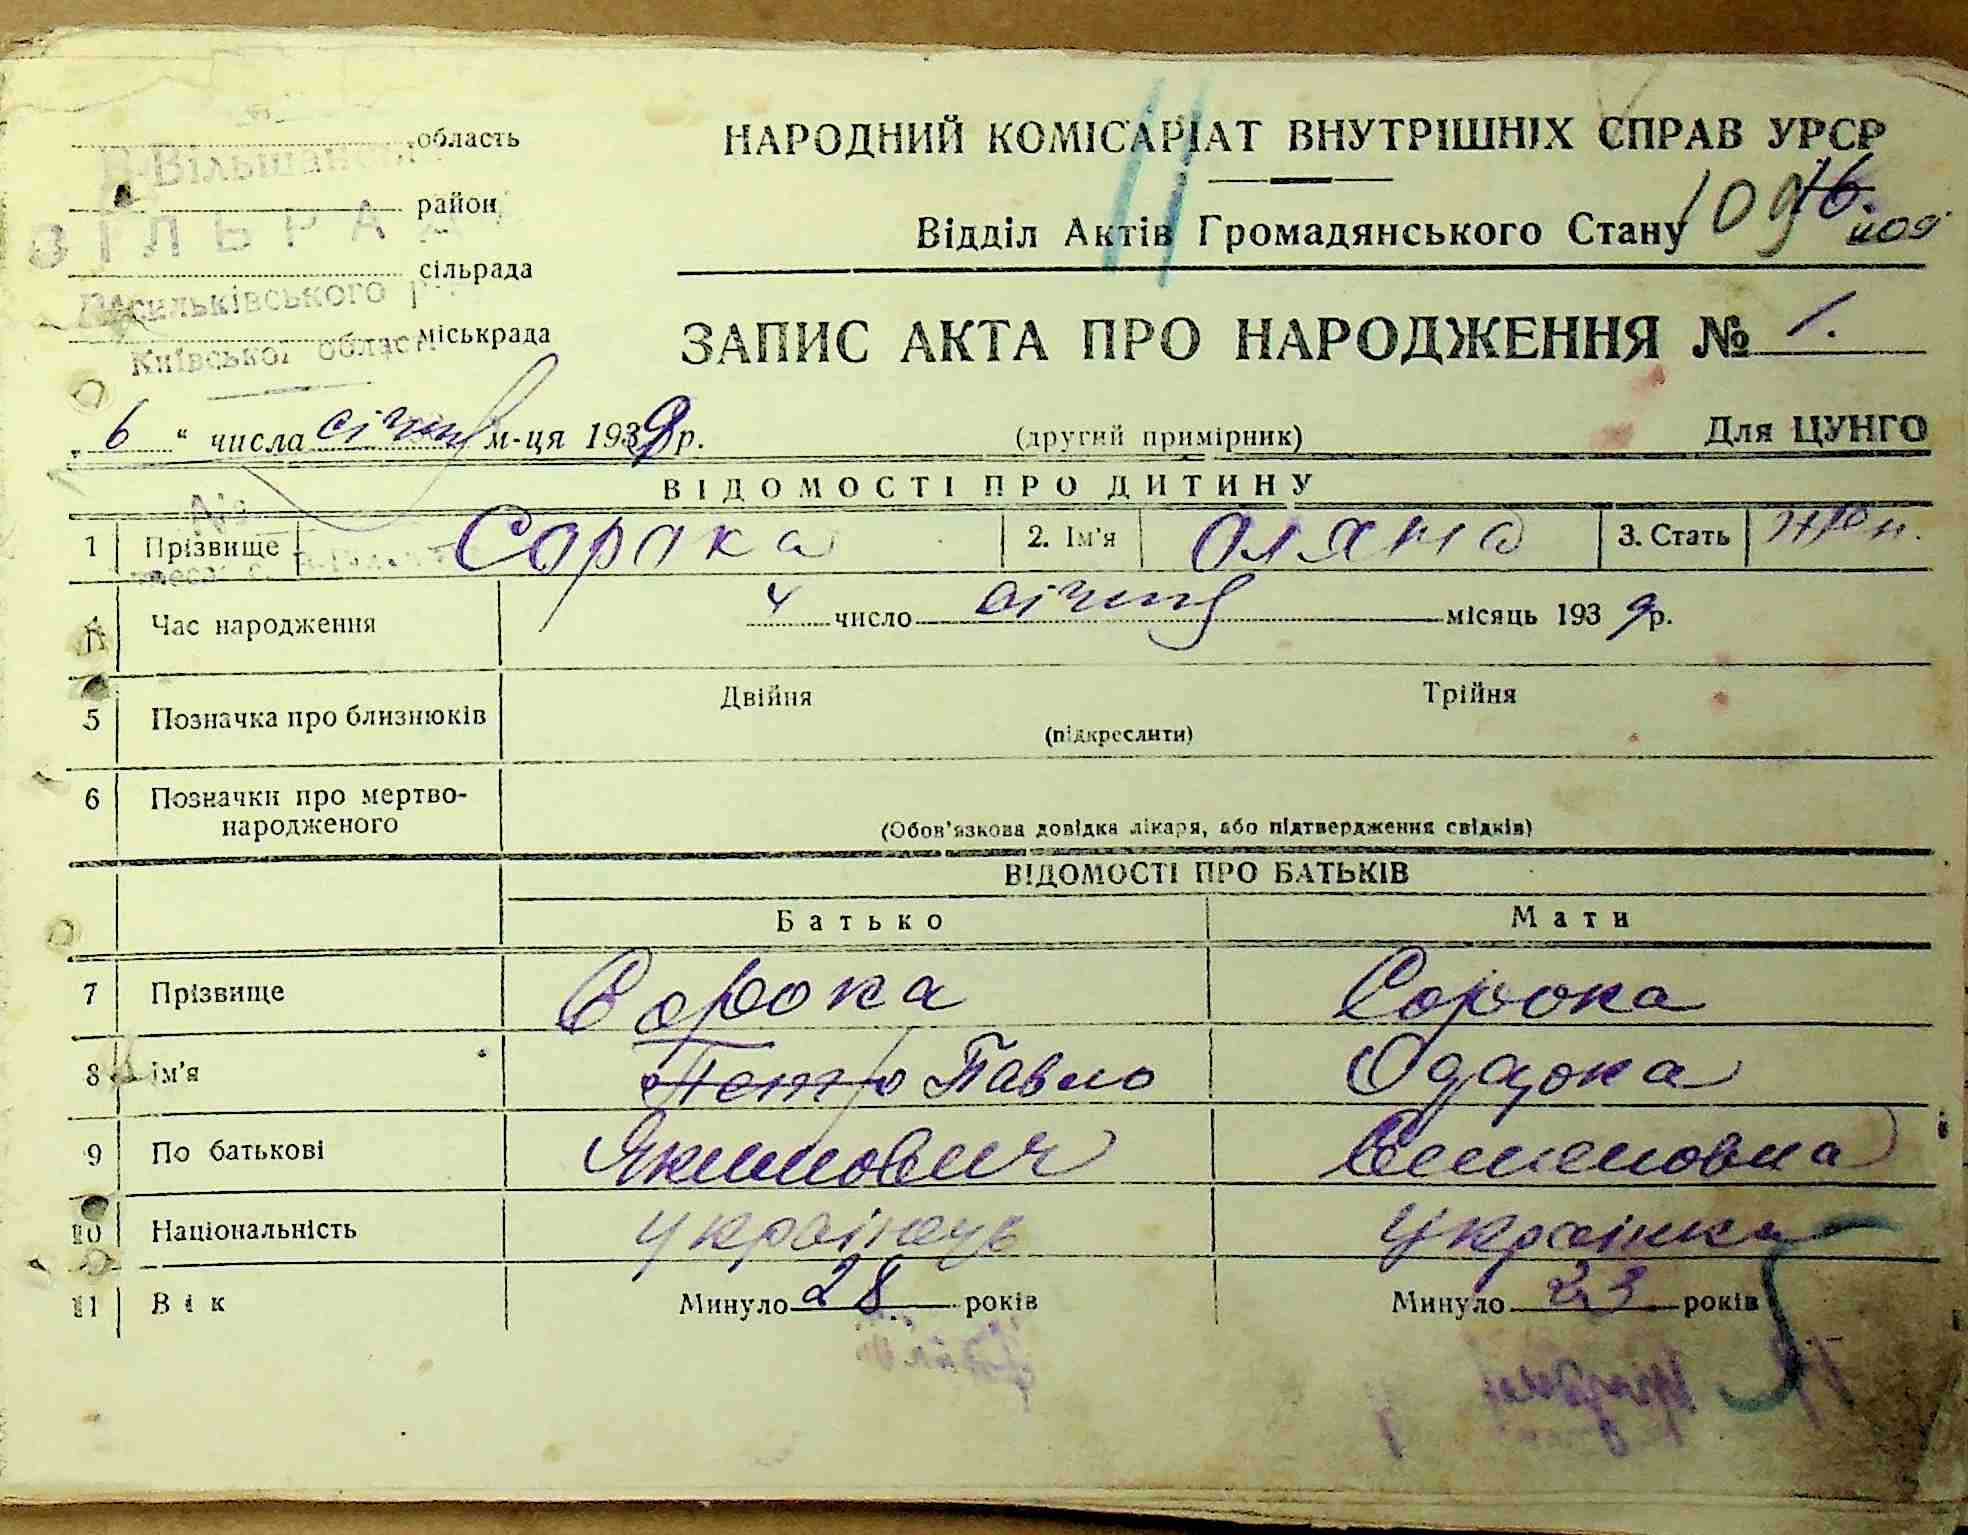 область
район
СІЛЬРАДА
сільрада
Васильківського р
міськрада
Київської област
НАРОДНИЙ КОМІСАРІАТ ВНУТРІШНІХ СПРАВ УРСР
Відділ Актів Громадянського Стану
ЗАПИС АКТА ПРО НАРОДЖЕННЯ № 1.
„6“ числа січня м-ця 1939р.
(другий примірник)
Для ЦУНГО
ВІДОМОСТІ ПРО ДИТИНУ
1 Прізвище Сорока 2. Ім'я Оляна 3. Стать жін.
4 Час народження 4 число січня місяць 1939р.
5 Позначка про близнюків Двійня Трійня
(підкреслити)
6 Позначки про мертво-
народженого
(Обов'язкова довідка лікаря, або підтвердження свідків)
ВІДОМОСТІ ПРО БАТЬКІВ
Батько Мати
7 Прізвище Сорока Сорока
8 ім'я Петро Павло Одарка
9 По батькові Якимович Семеновна
10 Національність українець українка
11 Вік Минуло 28 років Минуло 23 років